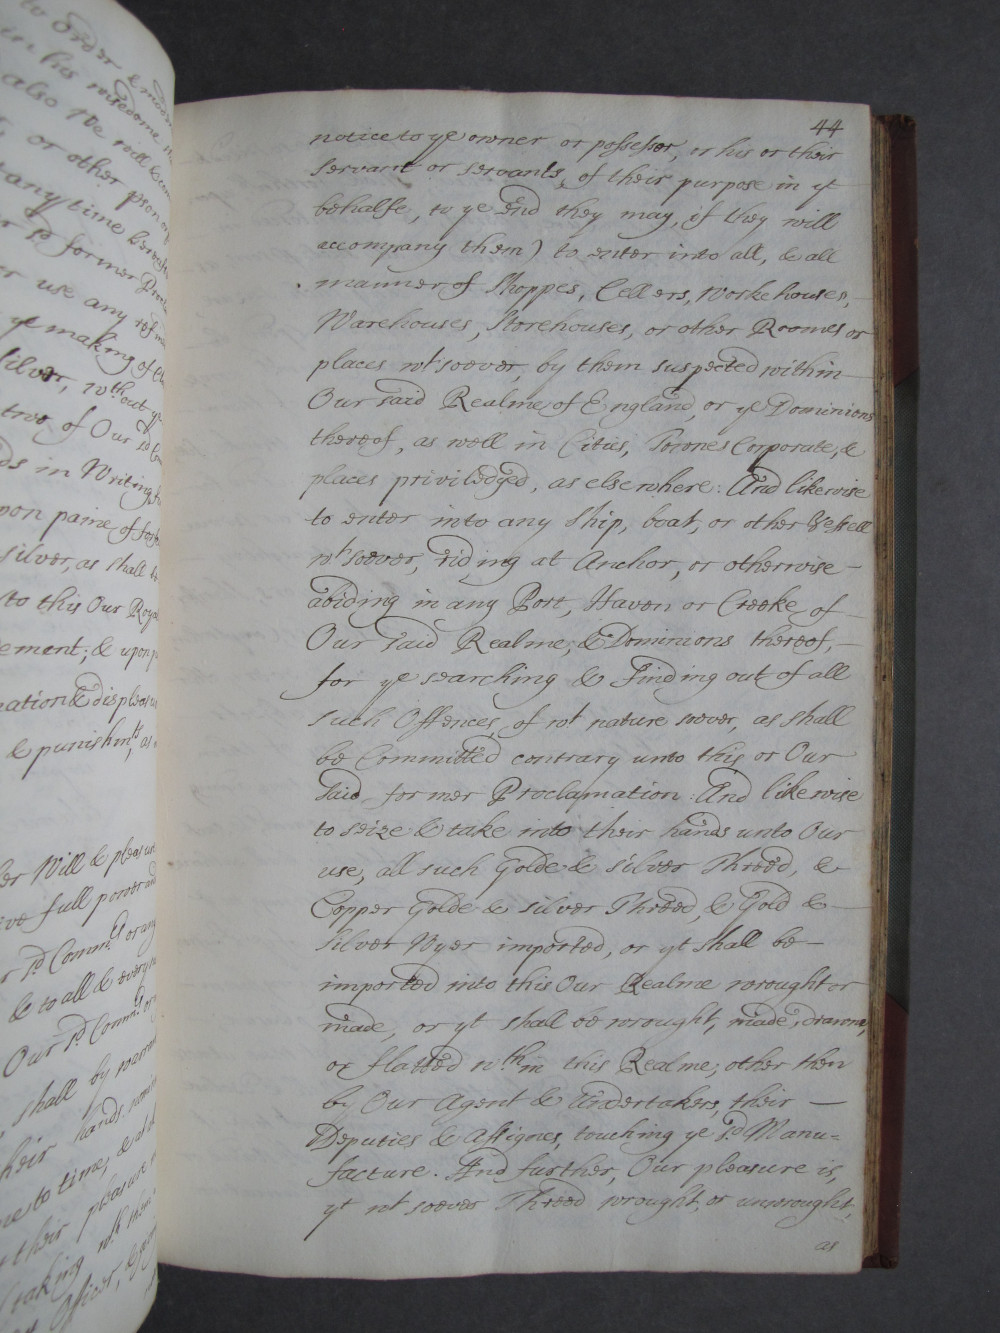 to Order &
in his wisedome
also We will &
or other pson or
any time hereafter
sd former
or use any
ye making of
Silver, wthout ye
two of Our sd
in Writing
upon paine of
silver, as shall
to this Our Royal
& upon
& displeasure
& punishmts, as
Will & pleasure
full power and
sd Commrs or any
& to all & every
Our sd Commrs or
shall by warrant
their hands
time to time, & at
their pleasure
taking wth them
Officer, &
44
notice to ye owner or possessor, or his or their
servant or servants, of their purpose in yt
behalfe, to ye End they may, if they will
accompany them) to enter into all, & all
manner of Shoppes, Cellers, Workehouses,
Warehouses, Storehouses, or other Roomes or
places wtsoever, by them suspected within
Our said Realme of England, or ye Dominions
thereof, as well in Cities, Townes Corporate, &
places priviledged, as elsewhere: And likewise
to enter into any Ship, boat, or other Vessell
wtsoever, riding at Anchor, or otherwise
abiding in any Port, Haven or Creeke of
Our said Realme, & Dominions thereof,
for ye searching & Finding out of all
such Offences, of wt nature soever, as shall
be Committed contrary unto this or Our
said former Proclamation: And likewise
to seize & take into their hands unto Our
use, all such Golde & silver Threed, &
Copper Golde & silver Threed, & Gold &
Silver Wyer imported, or yt shall be
imported into this Our Realme wrought or
made, or yt shall be wrought, made, drawne,
or flatted wthin this Realme, other then
by Our Agent & Undertakers, their
Deputies & Assignes, touching ye sd Manu=
facture. And further, Our pleasure is,
yt wt soever Threed wrought, or unwrought,
as